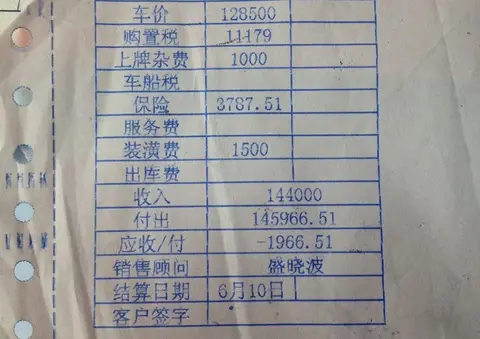 车价 128500
购置税 11179
上牌杂费 1000
车船税
保险 3787.51
服务费
装潢费 1500
出库费
收入 144000
付出 145966.51
应收/付 -1966.51
销售顾问 盛晓波
结算日期 6月10日
客户签字